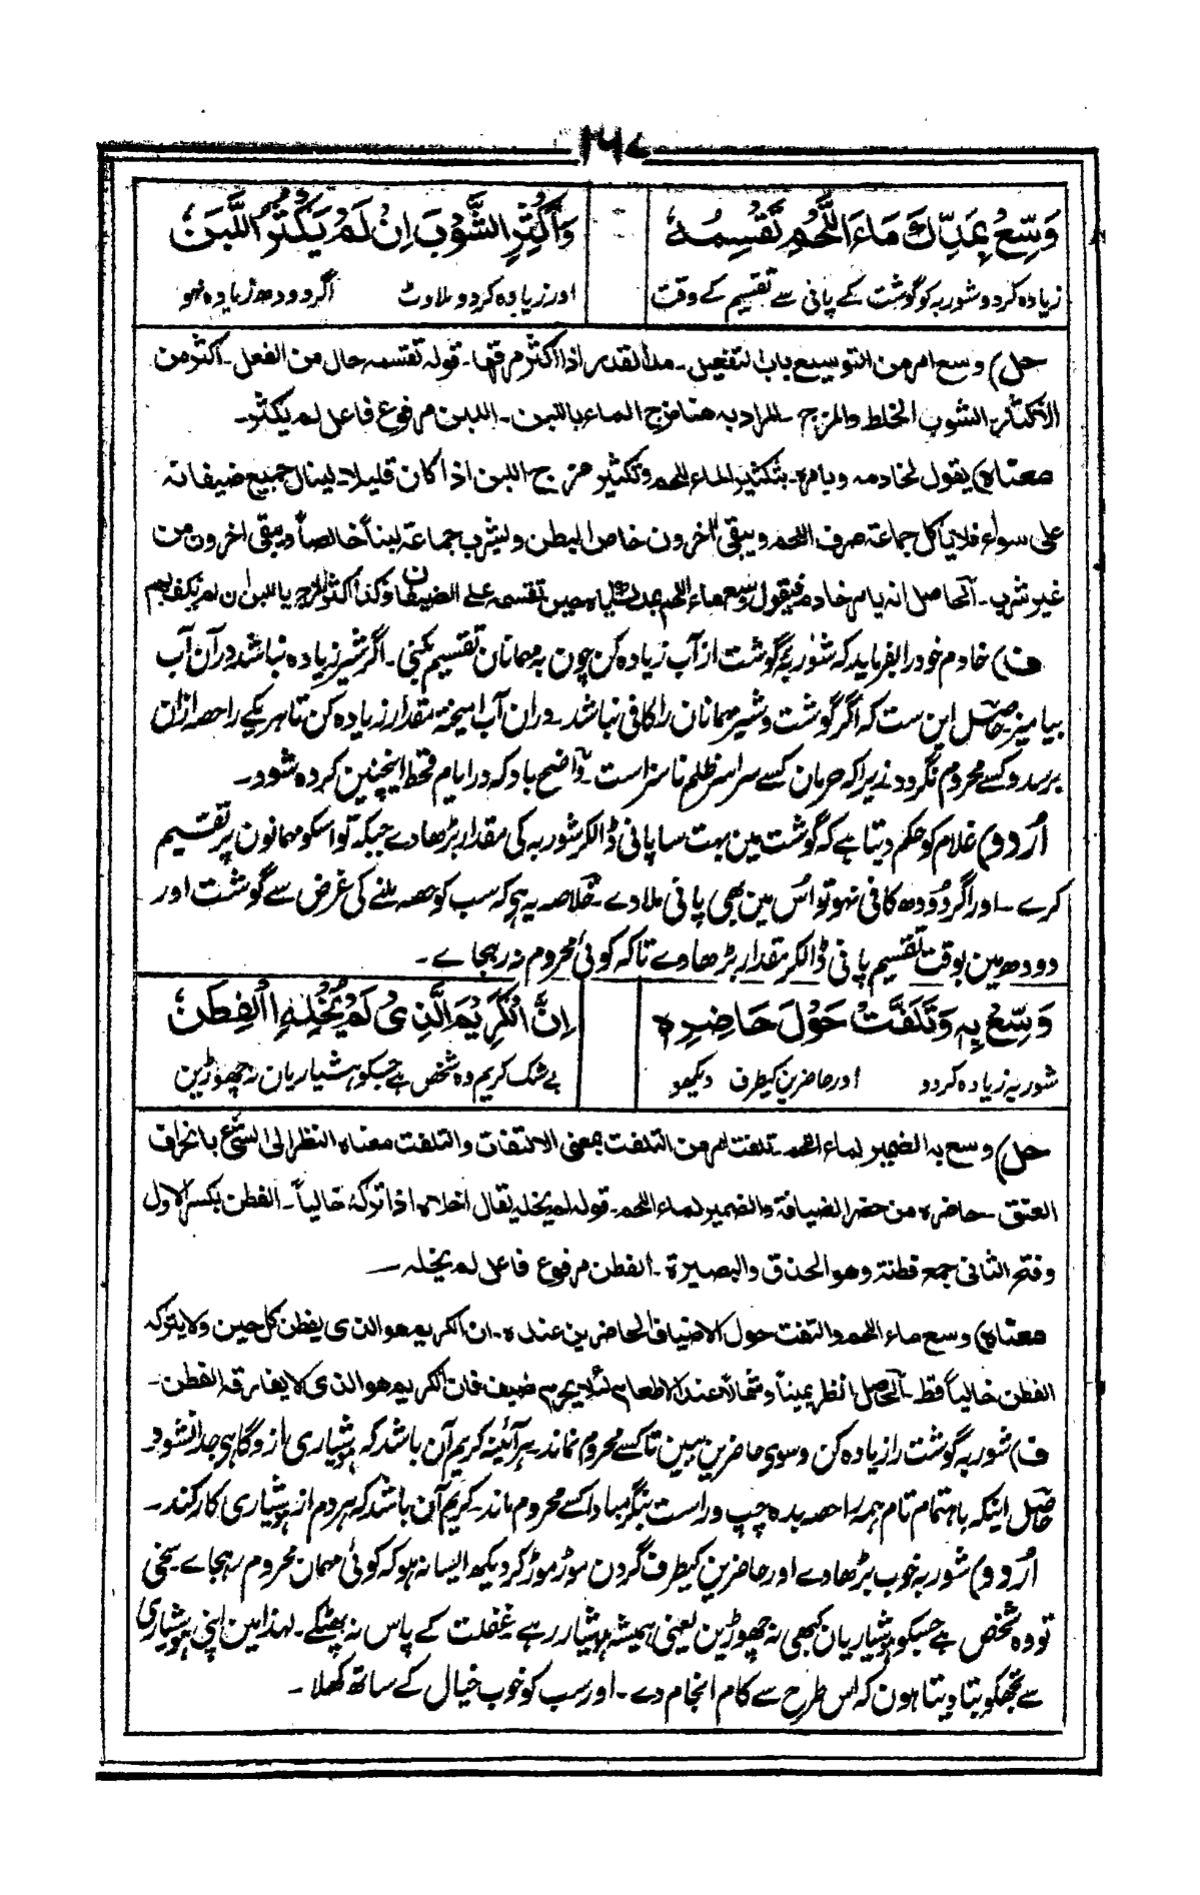 ۲۶۷
وَسِّعْ بِمَدِّكَ مَاءَ اللَّحْمِ تَقْسِمُهُ ٗ وَأَكْثِرِ الشَّوْبَ اِنْ لَمْ يَكْثُرِ اللَّبَنٗ
زیادہ کردو شوربہ کو گوشت کے پانی سے تقسیم کے وقت اور زیادہ کردو ملاوٹ اگر دودھ زیادہ نہو
حل) وسع امر من التوسیع باب التفعیل۔ مد القدر اذا اکثر مرقها۔ قوله تقسمه حال من الفعل۔ اکثر من
الاکثار، الشوب الخلط والمزج۔ المراد به هنا مزج الماء باللبن۔ اللبن مرفوع فاعل لم یکثر۔
معناہ) یقول لخادمه ویامرہ بتکثیر الماء اللحم وتکثیر مزج اللبن اذا کان قلیلا۔ لینال جمیع ضیفانه
علی سواء فلا یاکل جماعة صرف اللحم ویبقی اٰخرون خاص البطن ولیشرب جماعة لبناً خالصاً ویبقی اخرون من
غیر شرب۔ الحاصل انه یامر خادمه فیقول وسع ماء اللحم بمدک ایاہ حین تقسمه علی الضیفان وکذا اکثر المزج باللبن ان لم یکف بهم
ف) خادم خود را بفرماید کہ شوربۂ گوشت از آب زیادہ کن چون بہ مہمانان تقسیم بکنی۔ اگر شیر زیادہ نباشد در آن آب
بیامیز۔ حاصل این ست کہ اگر گوشت و شیر مہمانان را کافی نباشد۔ دران آب امیختہ مقدار زیادہ کن تا ہر یکے را حصہ ازان
برسد وکسے محروم نگردد زیراکہ حرمان کسے سراسر ظلم ناسزاست۔ واضح باد کہ در ایام قحط اینچنین کردہ شود۔
اُردو) غلام کو حکم دیتا ہے کہ گوشت مین بہت سا پانی ڈالکر شوربہ کی مقدار بڑھا دے جبکہ تو اسکو مہمانون پر تقسیم
کرے۔ اور اگر دُودھ کافی نہو تو اُس مین بھی پانی ملا دے۔ خلاصہ یہ ہی کہ سب کو حصہ ملنے کی غرض سے گوشت اور
دودھ مین بوقت تقسیم پانی ڈالکر مقدار بڑھا دے تاکہ کوئی محروم نہ رہجاے۔
وَسِّعْ بِهٖ وَتَلَفَّتْ حَوْلَ حَاضِرِهٖ اِنَّ الْكَرِيْمَ الَّذِيْ لَمْ يُخْلِهِ الْفِطَنٗ
شوربہ زیادہ کردو اور حاضرین کیطرف دیکھو بے شک کریم وہ شخص ہے جسکو ہشیاریان نہ چھوڑین
حل) وسع به الضمیر لماء اللحم۔ تلفت امر من التلفت بمعنی الالتفات والتلفت معناه النظر الی الشئ بانحراف
العنق۔ حاضره من حضر الضیافة والضمیر لماء اللحم۔ قوله لم یخله یقال اخلاه اذا ترکهٗ خالیاً۔ الفطن بکسر الاول
وفتح الثانی جمع فطنة وهو الحذق والبصیرة۔ الفطن مرفوع فاعل لم یخله۔
معناہ) وسع ماء اللحم والتفت حول الاضیاف الحاضرین عنده۔ ان الکریم هو الذی یفطن کل حین ولا یترکه
الفطن خالیاً قط۔ الحاصل انظر یمیناً وشمالاً عند الاطعام لئلا یحرم ضیف فان الکریم هو الذی لا یفارقه الفطن۔
ف) شوربہ گوشت را زیادہ کن و سوی حاضرین ببین تا کسے محروم نماند۔ ہر آئینہ کریم آن باشد کہ ہشیاری از و گاہی جدا نشود
حاصل اینکہ باہتمام تام ہمہ را حصہ بدہ چپ و راست بنگر مبادا کسے محروم ماند۔ کریم آن باشد کہ ہر دم از ہشیاری کار کند۔
اُردو) شوربہ خوب بڑھا دے اور حاضرین کیطرف گردن موڑ موڑ کر دیکھ ایسا نہ ہو کہ کوئی مہمان محروم رہجاے۔ سخی
تو وہ شخص ہے جسکو ہشیاریان کبھی نہ چھوڑین یعنی ہمیشہ ہشیار رہے غفلت کے پاس نہ پھٹکے۔ لہذا مین اپنی ہشیاری
سے تجھکو بتا دیتا ہون کہ اس طرح سے کام انجام دے۔ اور سب کو خوب خیال کے ساتھ کھلا۔